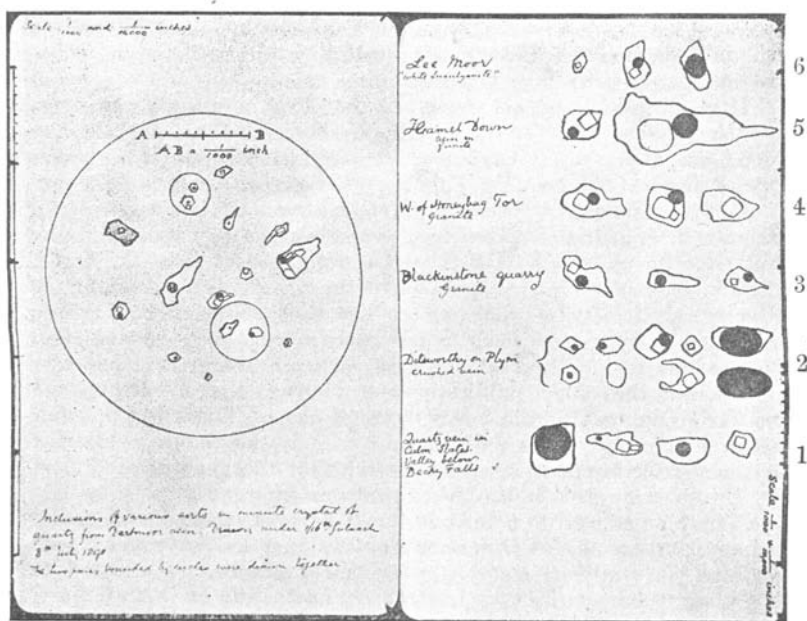 Scale 1/1000 and 1/10000 inches
A B
AB = 1/1000 inch
Inclusions of various sorts in minute crystal of
quartz from Dartmoor under 1/16th
8th July, 1890
The two pairs bounded by circles were drawn together
Lee Moor 6
Hamel Down 5
in
granite
W. of Honeybag Tor 4
Granite
Blackinstone quarry 3
Granite
on Plym 2
crushed vein
Quartz vein in 1
Culm Slates
Valley below
Becky Falls
Scale 1/1000 & 1/10000 inches